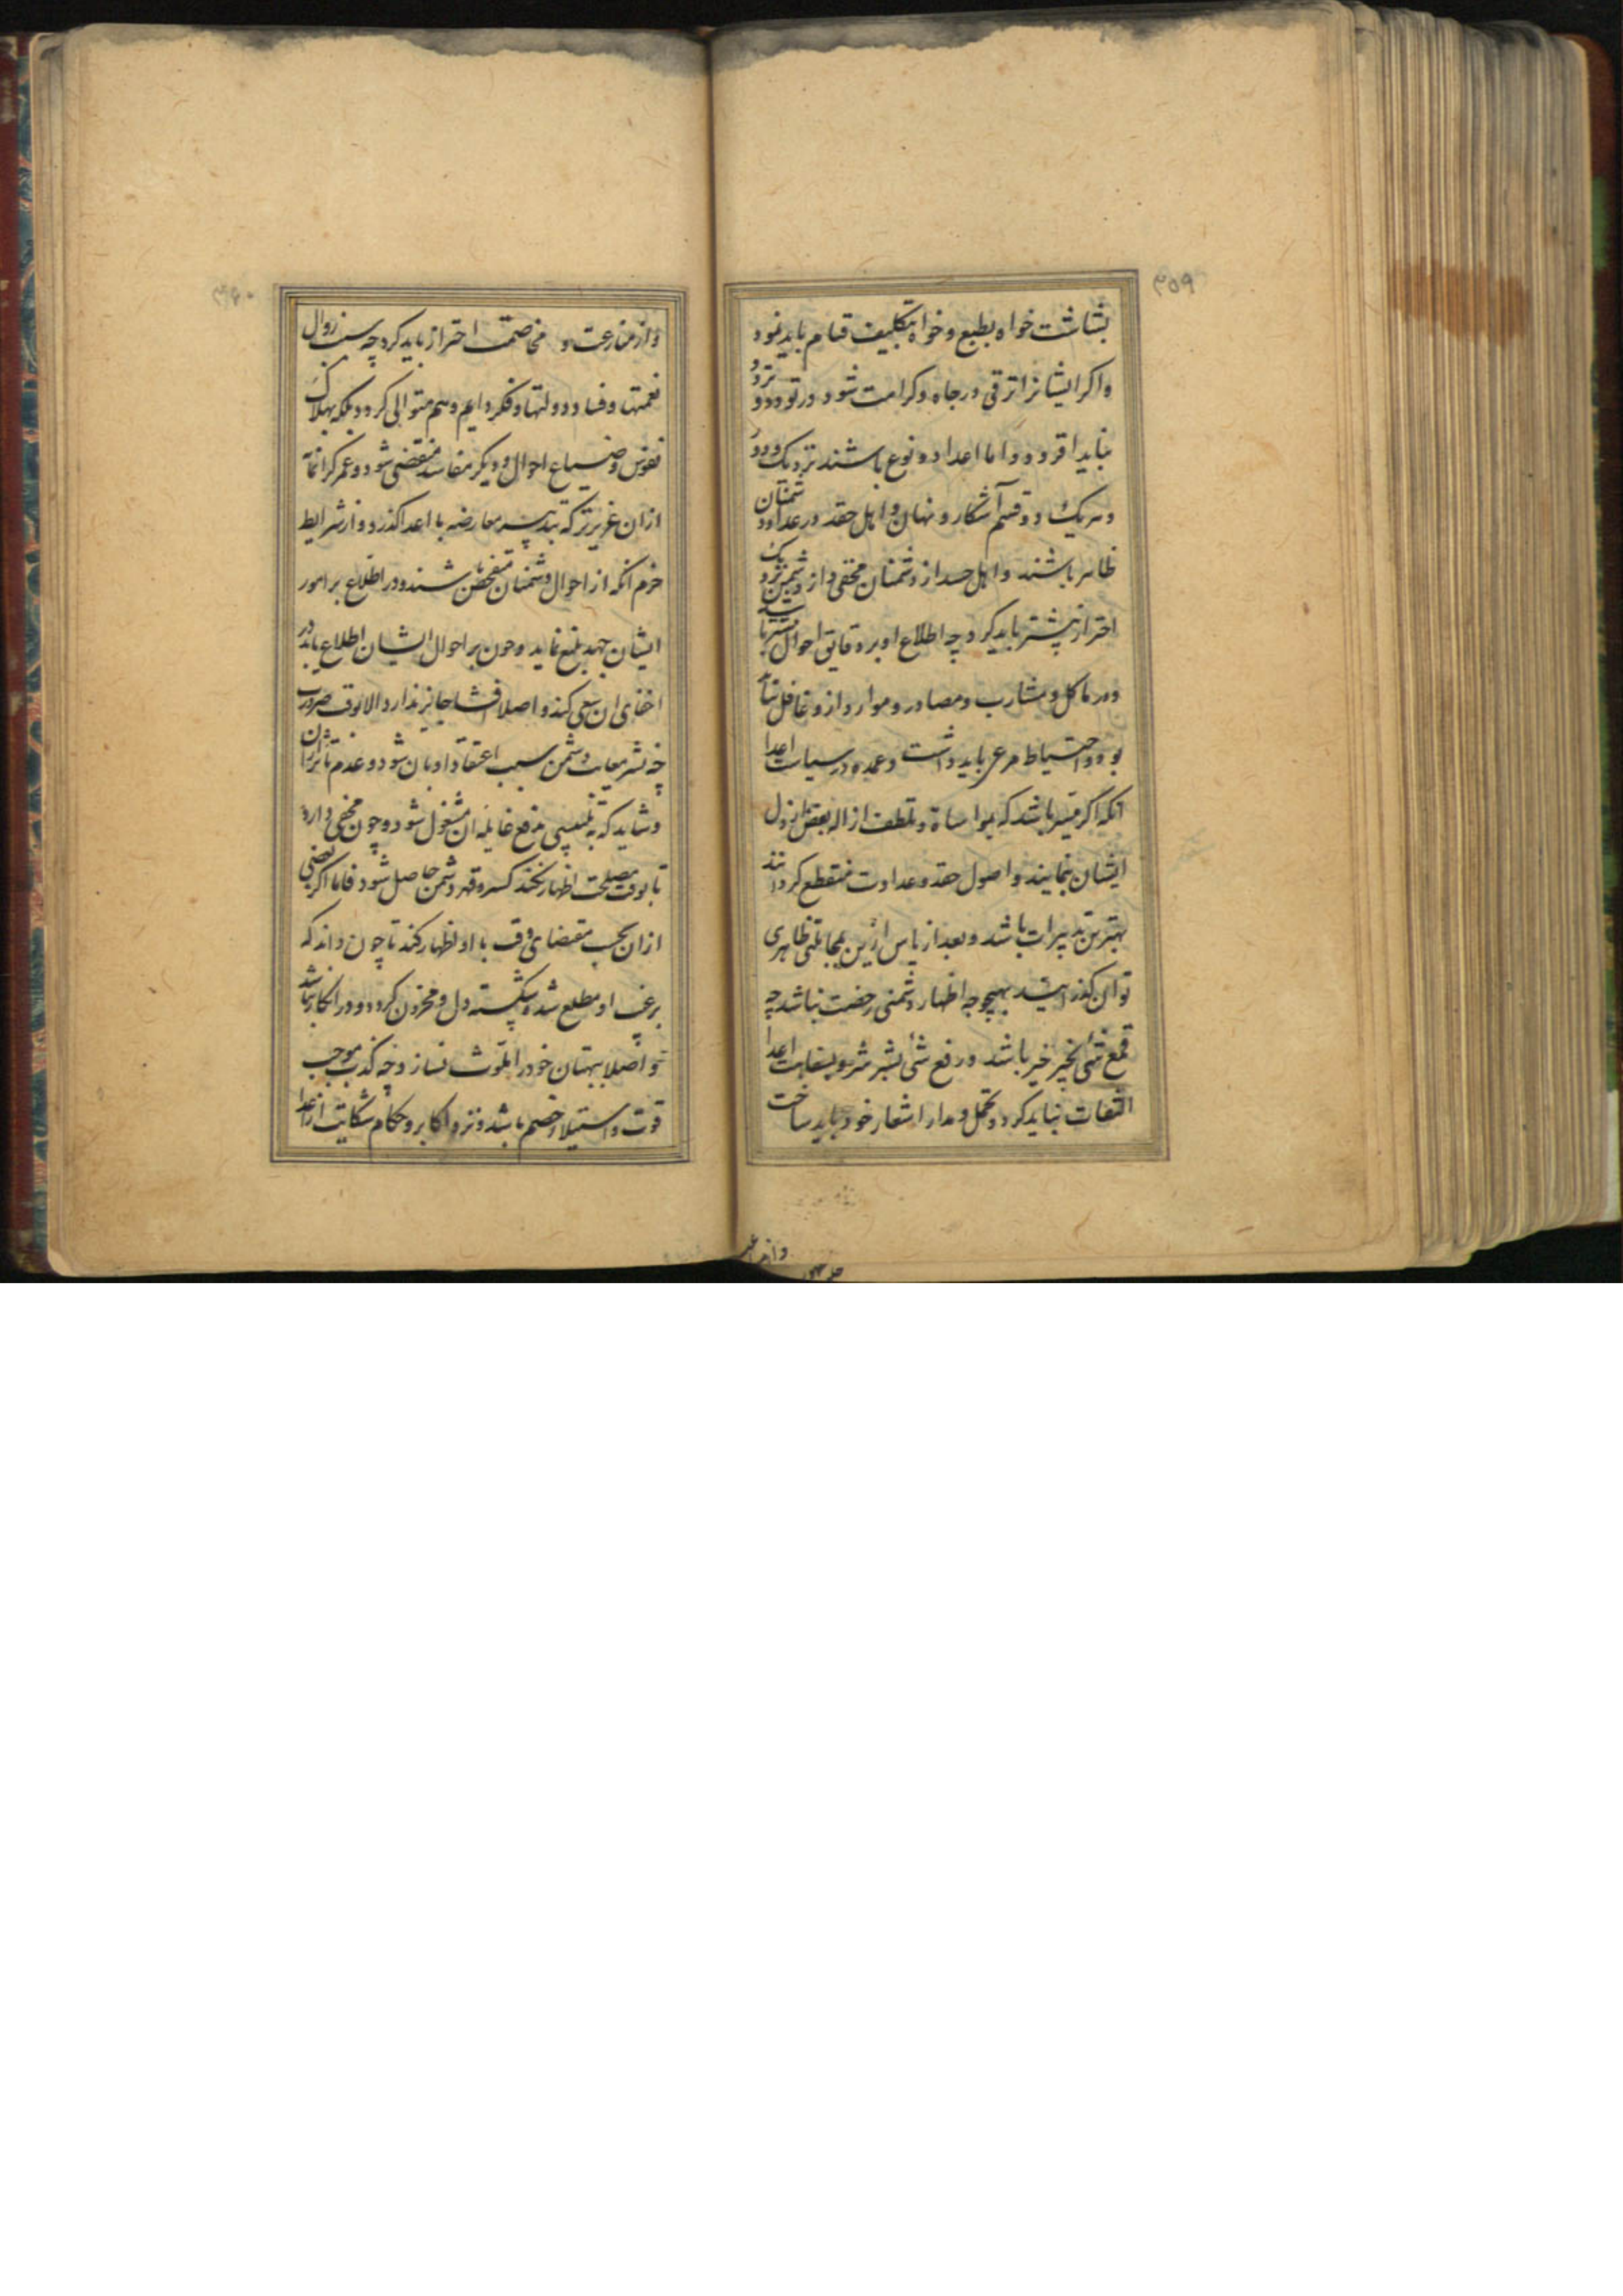 ۳۵۹
بشاشت خواه بطبع و خواه بتکلیف قیام باید نمود
واکر ایشانرا ترقی در جاه و کرامت شود در تودد و تردد
نباید افزود و اما اعدا دو نوع باشند نزدیک و دور
و هریک دو قسم آشکار و نهان و اهل حقد در عداد دشمنان
ظاهر باشند و اهل حسد از دشمنان مخفی و از دشمن نزدیک
احتراز بیشتر باید کرد چه اطلاع او بر دقایق احوال بیشتر باشد
و در ماکل و مشارب و مصادر و موارد ازو غافل نباید
بود و احتیاط مرعی باید داشت و عمده در سیاست اعدا
انکه اکر میسر باشد که بمواساة و تلطف ازاله بغض از دل
ایشان نمایند و اصول حقد و عداوت منقطع کردانند
بهترین تدبیرات باشد و بعد از یاس ازین بمجاملتی ظاهری
توان کذرانید بهیچ وجه اظهار دشمنی رخصت نباشد چه
قمع شی بخیر خیر باشد و رفع شی بشر شر و بسفاهت اعدا
التفات نباید کرد و تحمل و مدارا شعار خود باید ساخت
۳۶۰
و از منازعت و مخاصمت احتراز باید کرد چه سبب زوال
نعمتها و فساد دولتها و فکر دایم و هم متوالی کردد بلکه بهلاک
نفوس و ضیاع احوال و دیکر مفاسد مفضی شود و عمر کرانمایه
ازان عزیزتر که بتدبیر معارضه با اعدا کذرد و از شرایط
حزم انکه از احوال دشمنان متفحص باشند و در اطلاع بر امور
ایشان جهد بلیغ نماید و چون بر احوال ایشان اطلاع یابد در
اخفای ان سعی کند و اصلا افشا جایز ندارد الا بوقت ضرورت
چه نشر معایب دشمن سبب اعتقاد او بان شود و عدم تاثر از ان
و شاید که بتلبیسی بدفع غایله ان مشغول شود و چون مخفی دارد
تا بوقت مصلحت اظهار کند کسر و قهر دشمن حاصل شود فاما اکر بعضی
ازان بحسب مقتضای وقت با او اظهار کند تا چون داند که
بر عیب او مطلع شد شکسته دل و محزون کردد و در انکار
و اصلا ببهتان خود را ملوث نسازد چه کذب موجب
قوت و استیلاء خصم باشد و نزد اکابر و حکام شکایت از اعدا